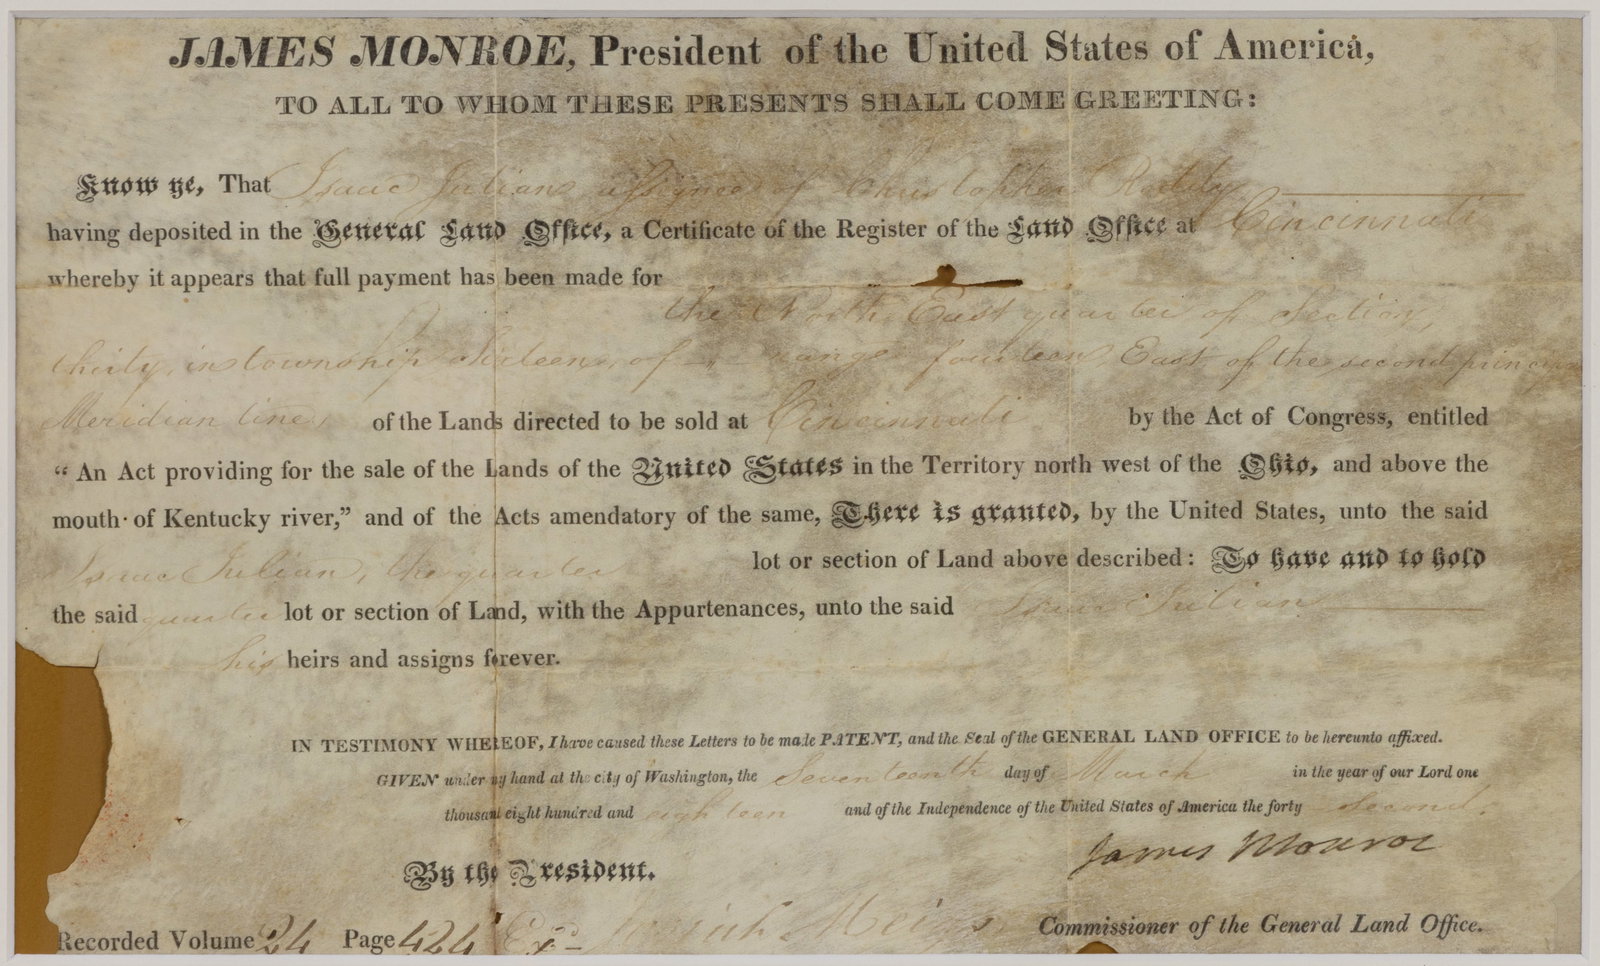 JAMES MONROE, President of the United States of America,
TO ALL TO WHOM THESE PRESENTS SHALL COME GREETING:
Know ye, That Isaac Julian assignee of Christopher
having deposited in the General Land Office, a Certificate of the Register of the Land Office at Cincinnati
whereby it appears that full payment has been made for
the North East quarter of Section
thirty, in township Sixteen, of range fourteen East of the second principal
Meridian line, of the Lands directed to be sold at Cincinnati by the Act of Congress, entitled
“ An Act providing for the sale of the Lands of the United States in the Territory north west of the Ohio, and above the
mouth of Kentucky river,” and of the Acts amendatory of the same, There is granted, by the United States, unto the said
Isaac Julian, the quarter lot or section of Land above described: To have and to hold
the said quarter lot or section of Land, with the Appurtenances, unto the said Isaac Julian
his heirs and assigns forever.
IN TESTIMONY WHEREOF, I have caused these Letters to be made PATENT, and the Seal of the GENERAL LAND OFFICE to be hereunto affixed.
GIVEN under my hand at the city of Washington, the Seventeenth day of March in the year of our Lord one
thousant eight hundred and eighteen and of the Independence of the United States of America the forty second.
James Monroe
By the President.
Recorded Volume 24 Page 424 Josiah Meigs Commissioner of the General Land Office.